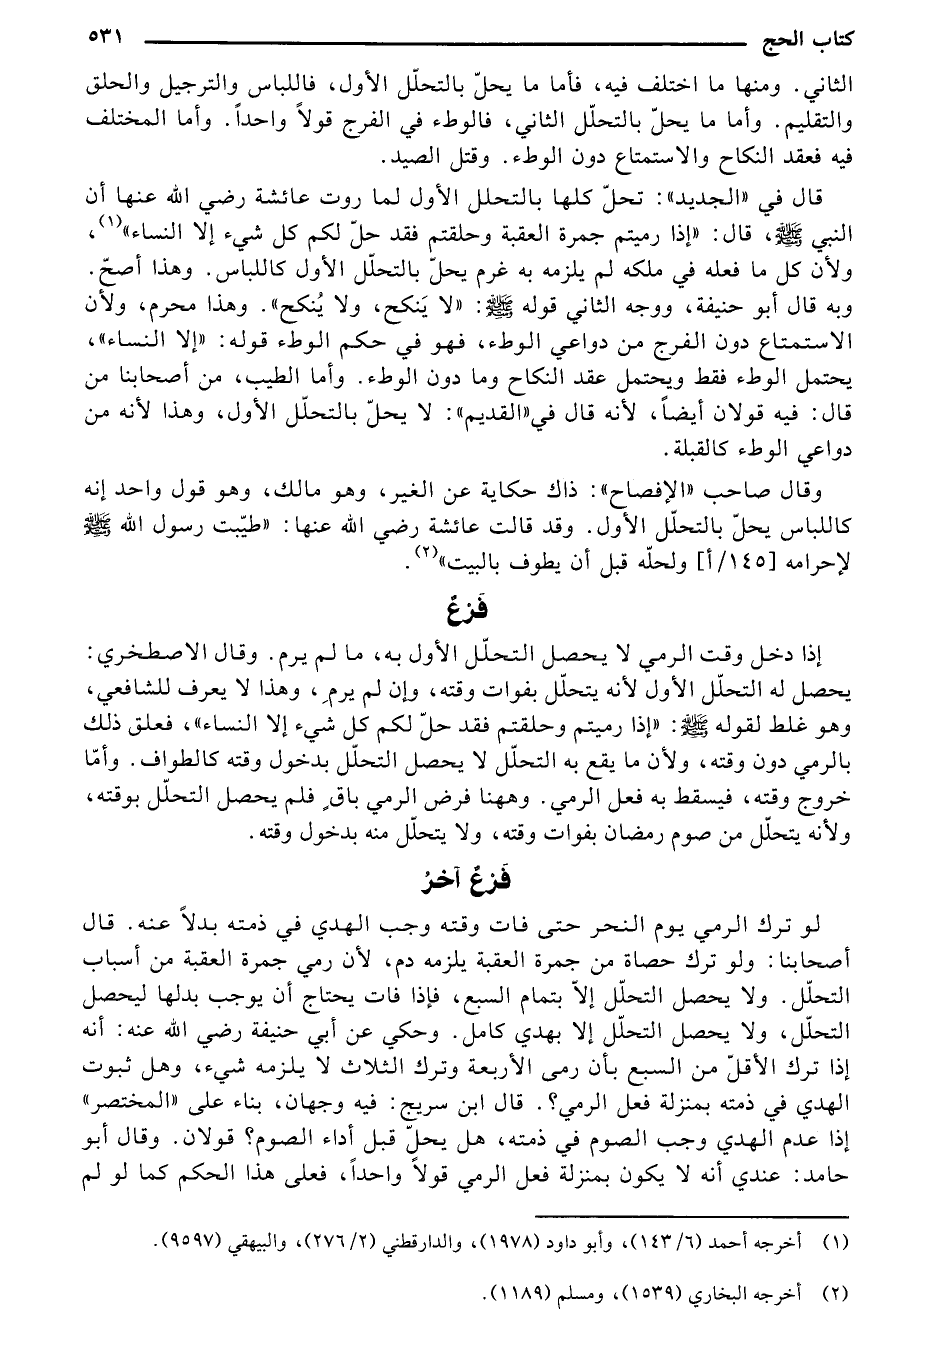 كتاب الحج ٥٣١
الثاني. ومنها ما اختلف فيه، فأما ما يحلّ بالتحلّل الأول، فاللباس والترجيل والحلق
والتقليم. وأما ما يحلّ بالتحلّل الثاني، فالوطء في الفرج قولاً واحداً. وأما المختلف
فيه فعقد النكاح والاستمتاع دون الوطء. وقتل الصيد.
قال في «الجديد»: تحلّ كلها بالتحلل الأول لما روت عائشة رضي الله عنها أن
النبي ﷺ، قال: «إذا رميتم جمرة العقبة وحلقتم فقد حلّ لكم كل شيء إلا النساء»(١)،
ولأن كل ما فعله في ملكه لم يلزمه به غرم يحلّ بالتحلّل الأول كاللباس. وهذا أصحّ.
وبه قال أبو حنيفة، ووجه الثاني قوله ﷺ: «لا يَنكح، ولا يُنكح». وهذا محرم، ولأن
الاستمتاع دون الفرج من دواعي الوطء، فهو في حكم الوطء قوله: «إلا النساء»،
يحتمل الوطء فقط ويحتمل عقد النكاح وما دون الوطء. وأما الطيب، من أصحابنا من
قال: فيه قولان أيضاً، لأنه قال في«القديم»: لا يحلّ بالتحلّل الأول، وهذا لأنه من
دواعي الوطء كالقبلة.
وقال صاحب «الإفصاح»: ذاك حكاية عن الغير، وهو مالك، وهو قول واحد إنه
كاللباس يحلّ بالتحلّل الأول. وقد قالت عائشة رضي الله عنها: «طيّبت رسول الله ﷺ
لإحرامه [١٤٥/ أ] ولحلّه قبل أن يطوف بالبيت»(٢).
فَرْعٌ
إذا دخل وقت الرمي لا يحصل التحلّل الأول به، ما لم يرم. وقال الاصطخري:
يحصل له التحلّل الأول لأنه يتحلّل بفوات وقته، وإن لم يرمِ، وهذا لا يعرف للشافعي،
وهو غلط لقوله ﷺ: «إذا رميتم وحلقتم فقد حلّ لكم كل شيء إلا النساء»، فعلق ذلك
بالرمي دون وقته، ولأن ما يقع به التحلّل لا يحصل التحلّل بدخول وقته كالطواف. وأمّا
خروج وقته، فيسقط به فعل الرمي. وههنا فرض الرمي باقٍ فلم يحصل التحلّل بوقته،
ولأنه يتحلّل من صوم رمضان بفوات وقته، ولا يتحلّل منه بدخول وقته.
فَرْعٌ آخرُ
لو ترك الرمي يوم النحر حتى فات وقته وجب الهدي في ذمته بدلاً عنه. قال
أصحابنا: ولو ترك حصاة من جمرة العقبة يلزمه دم، لأن رمي جمرة العقبة من أسباب
التحلّل. ولا يحصل التحلّل إلاّ بتمام السبع، فإذا فات يحتاج أن يوجب بدلها ليحصل
التحلّل، ولا يحصل التحلّل إلا بهدي كامل. وحكي عن أبي حنيفة رضي الله عنه: أنه
إذا ترك الأقلّ من السبع بأن رمى الأربعة وترك الثلاث لا يلزمه شيء، وهل ثبوت
الهدي في ذمته بمنزلة فعل الرمي؟. قال ابن سريج: فيه وجهان، بناء على «المختصر»
إذا عدم الهدي وجب الصوم في ذمته، هل يحلّ قبل أداء الصوم؟ قولان. وقال أبو
حامد: عندي أنه لا يكون بمنزلة فعل الرمي قولاً واحداً، فعلى هذا الحكم كما لو لم
(١) أخرجه أحمد (٦/ ١٤٣)، وأبو داود (١٩٧٨)، والدارقطني (٢/ ٢٧٦)، والبيهقي (٩٥٩٧).
(٢) أخرجه البخاري (١٥٣٩)، ومسلم (١١٨٩).